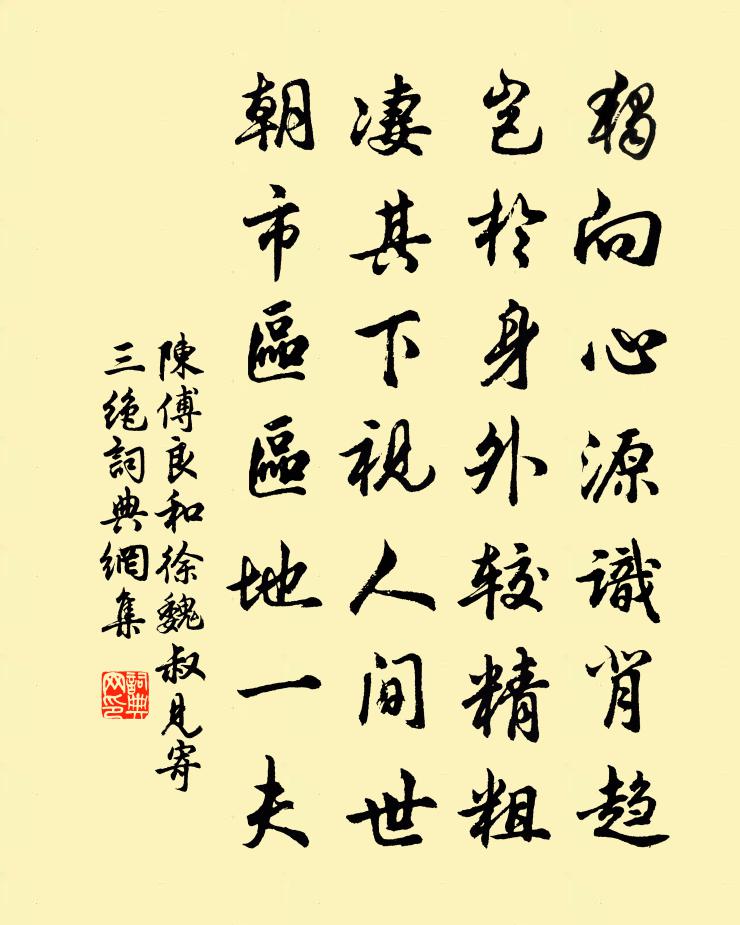 獨向心源識背趨
豈於身外較精粗
凄其下視人間世
朝市區區地一夫
陳傅良和徐魏叔見寄
三絕詞典網集
詞典网印